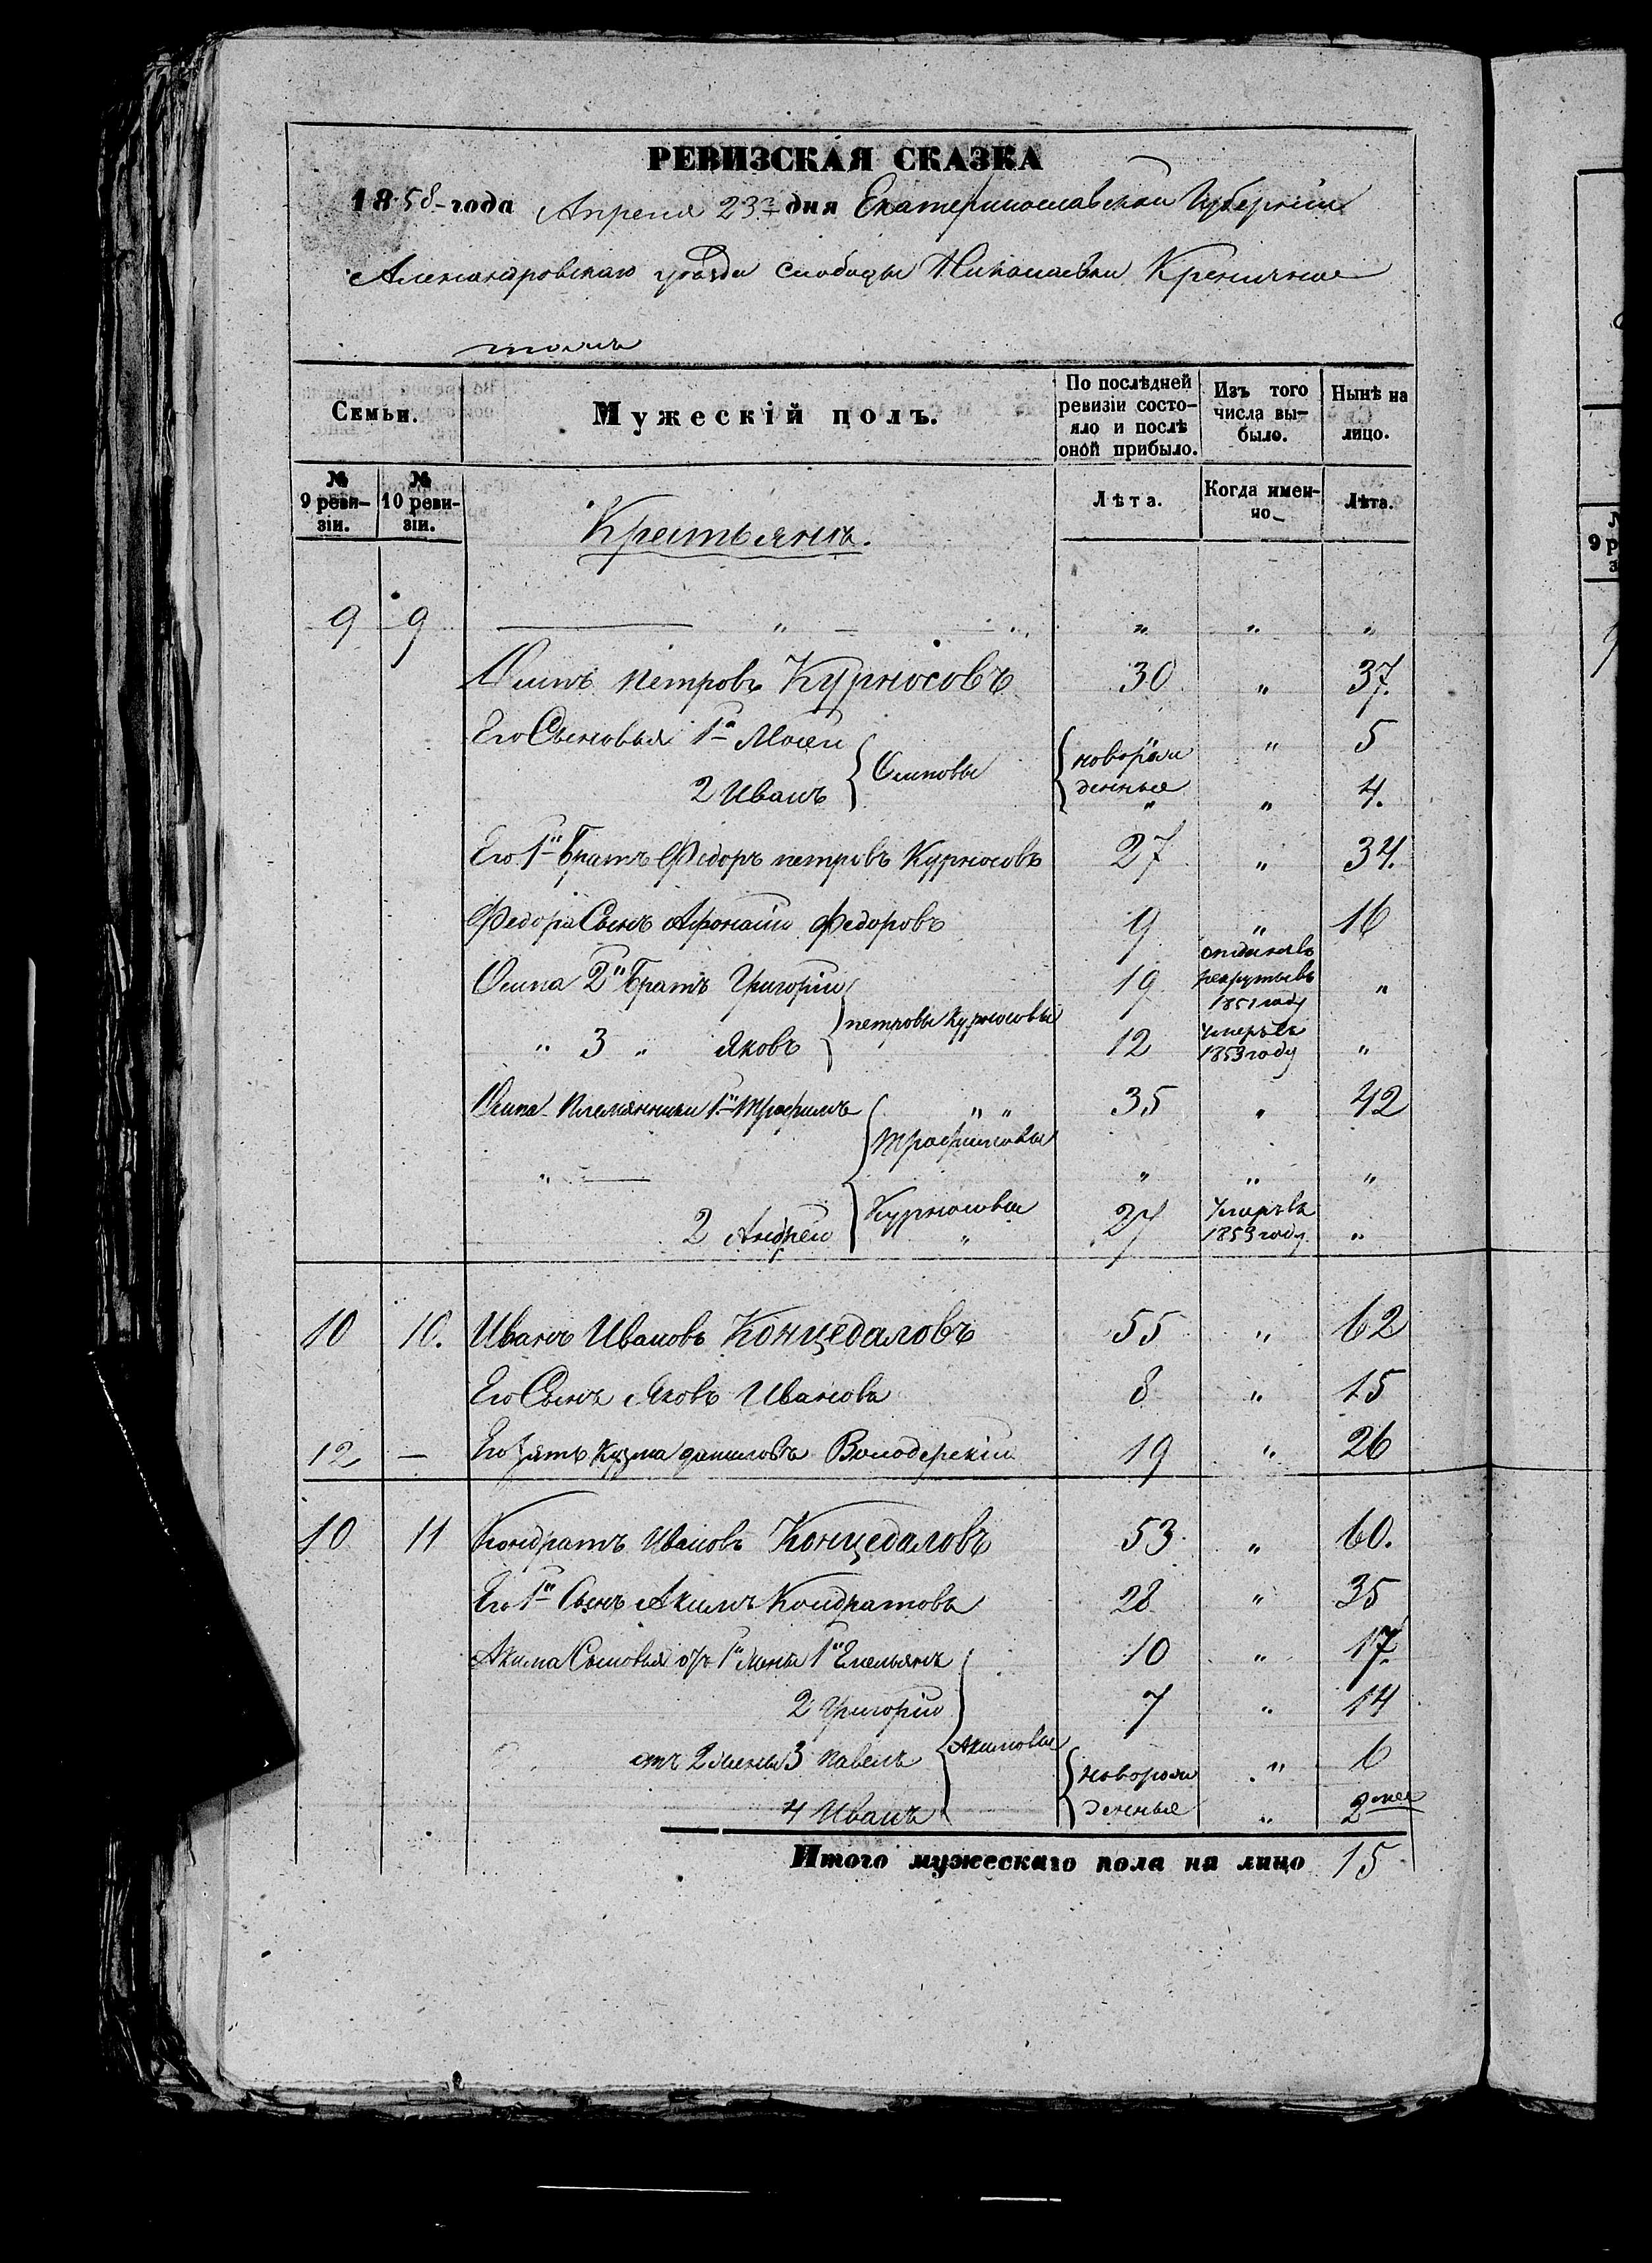 РЕВИЗСКАЯ СКАЗКА
1858 года Апреля 23го дня Екатеринославской Губернии
Александровскаго уѣзда слободы Николаевки
тожъ
Семьи.
Мужескій полъ.
По послѣдней ревизіи состояло и послѣ оной прибыло.
Изъ того числа вы-было.
Нынѣ на лицо.
№ 9 реви-зіи.
№ 10 реви-зіи.
Лѣта.
Когда имен-но
Лѣта.
Крестьянъ.
9 9 „ „ „ „ „
Осипъ петровъ Курносовъ 30 „ 37.
Его Сыновья 1й Моисей „ 5
Осиповы новорож
2 Иванъ денные „ 4.
Его 1й Братъ Федоръ петровъ Курносовъ 27 „ 34.
Федора Сынъ Афонасій Федоровъ 9 „ 16
Осипа 2й Братъ Григорій 19 отданъ въ рекруты въ 1851 году „
петровы Курносовы
„ 3 „ Яковъ 12 Умеръ въ 1853 году „
Осипа Племянники 1й Трофимъ „ „ 35 „ 42
Трофимовы
„ „ „ „
Курносовы
2 Андрей „ 27 Умеръ въ 1853 году „
10 10. Иванъ Ивановъ Концедаловъ 55 „ 62
Его Сынъ Яковъ Ивановъ 8 „ 15
12 — Его Зять Кузма даниловъ 19 „ 26
10 11 Кондратъ Ивановъ Концедаловъ 53 „ 60.
Его 1й Сынъ Акимъ Кондратовъ 28 „ 35
Акима Сыновья отъ 1й жены 1й Емельянъ 10 „ 17.
2 Григорій 7 „ 14
Акимовы
отъ 2 жены 3 павелъ новорож „ 6
4 Иванъ денные „ 2 мес
Итого мужескаго пола на лицо 15